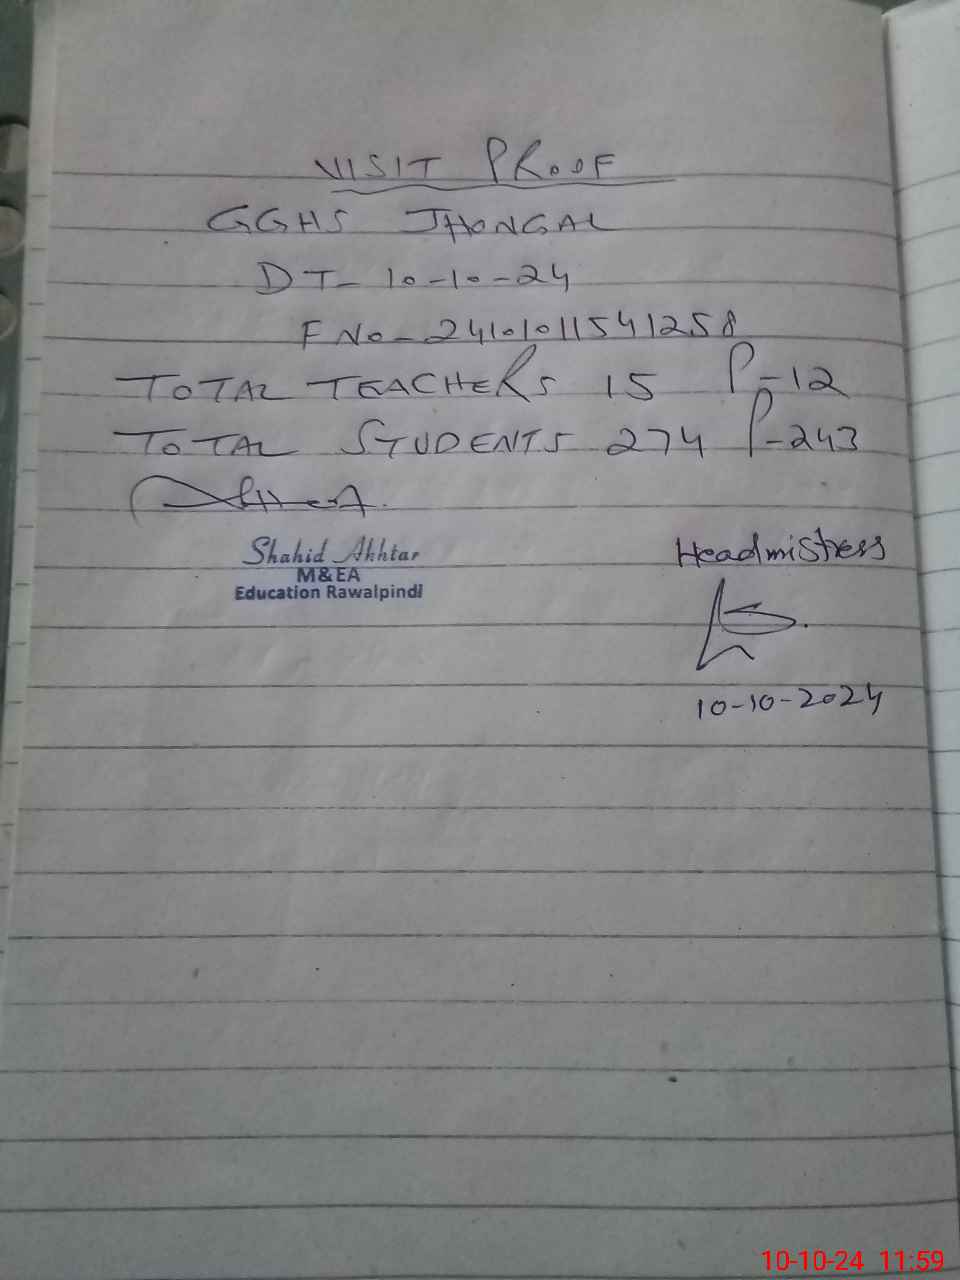 VISIT PROOF
GGHS JHONGAL
DT- 10-10-24
F No - 24101011541258
TOTAL TEACHERS 15 P-12
TOTAL STUDENTS 274 P-243
Shahid Akhtar
M&EA
Education Rawalpindi
Headmistress
10-10-2024
10-10-24 11:59